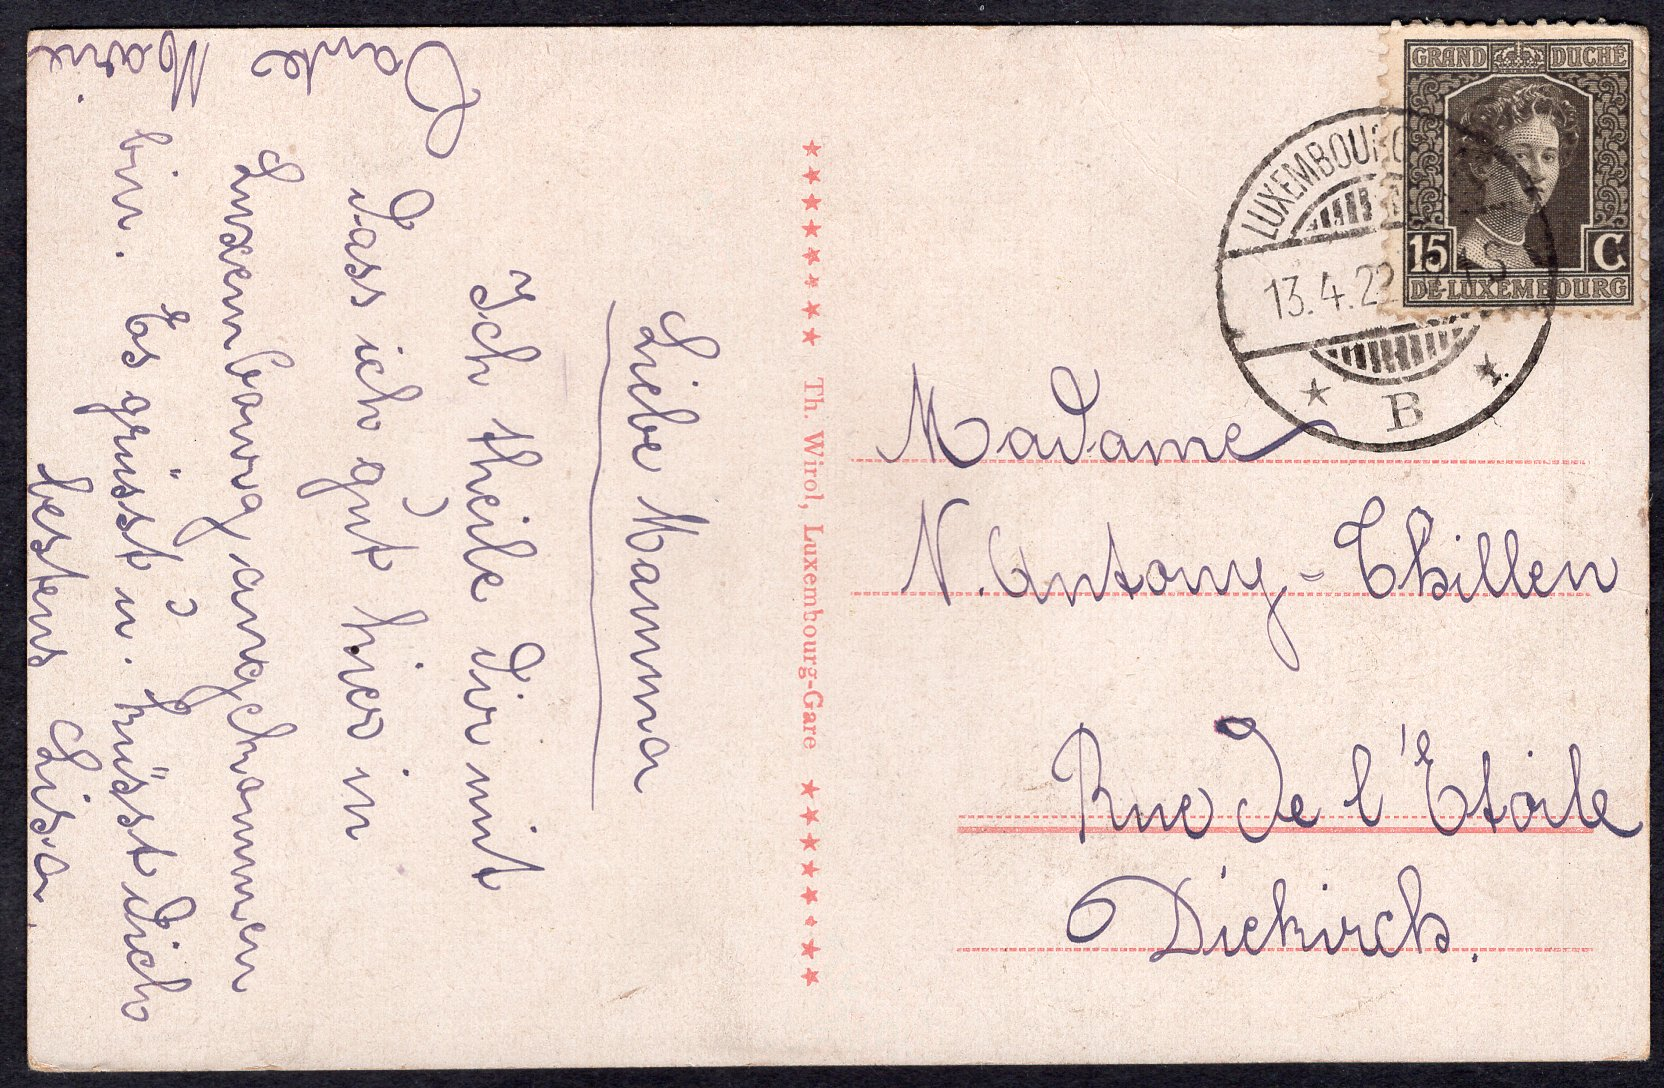 Liebe Mamma
Ich theile dir mit
dass ich gut hier in
Luxembourg angekommen
bin. Es grüsst u. küsst dich
bestens Lisa.
Tante
Marie
Th. Wirol, Luxembourg-Gare
GRAND DUCHÉ
15 C.
DE LUXEMBOURG
LUXEMBOURG
13.4.22
B
Madame
N. Antony-Thillen
Rue de l'Etoile
Diekirch.